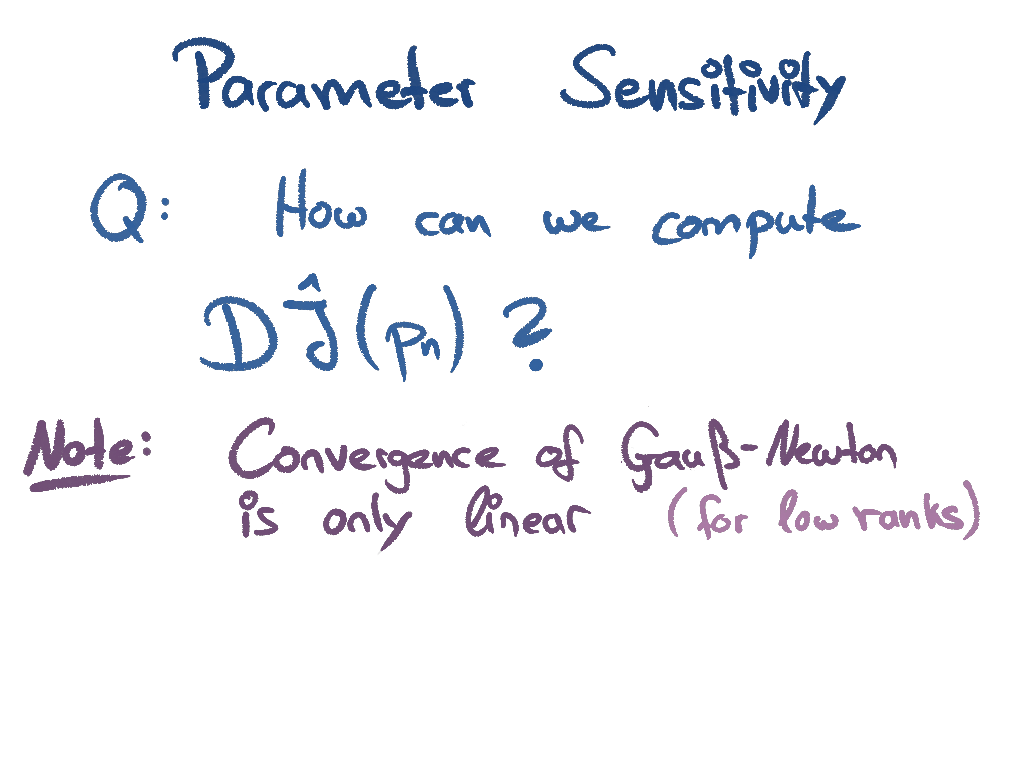 Parameter Sensitivity
Q: How can we compute
DĴ(pₙ)?
Note: Convergence of Gauß-Newton
is only linear (for low ranks)